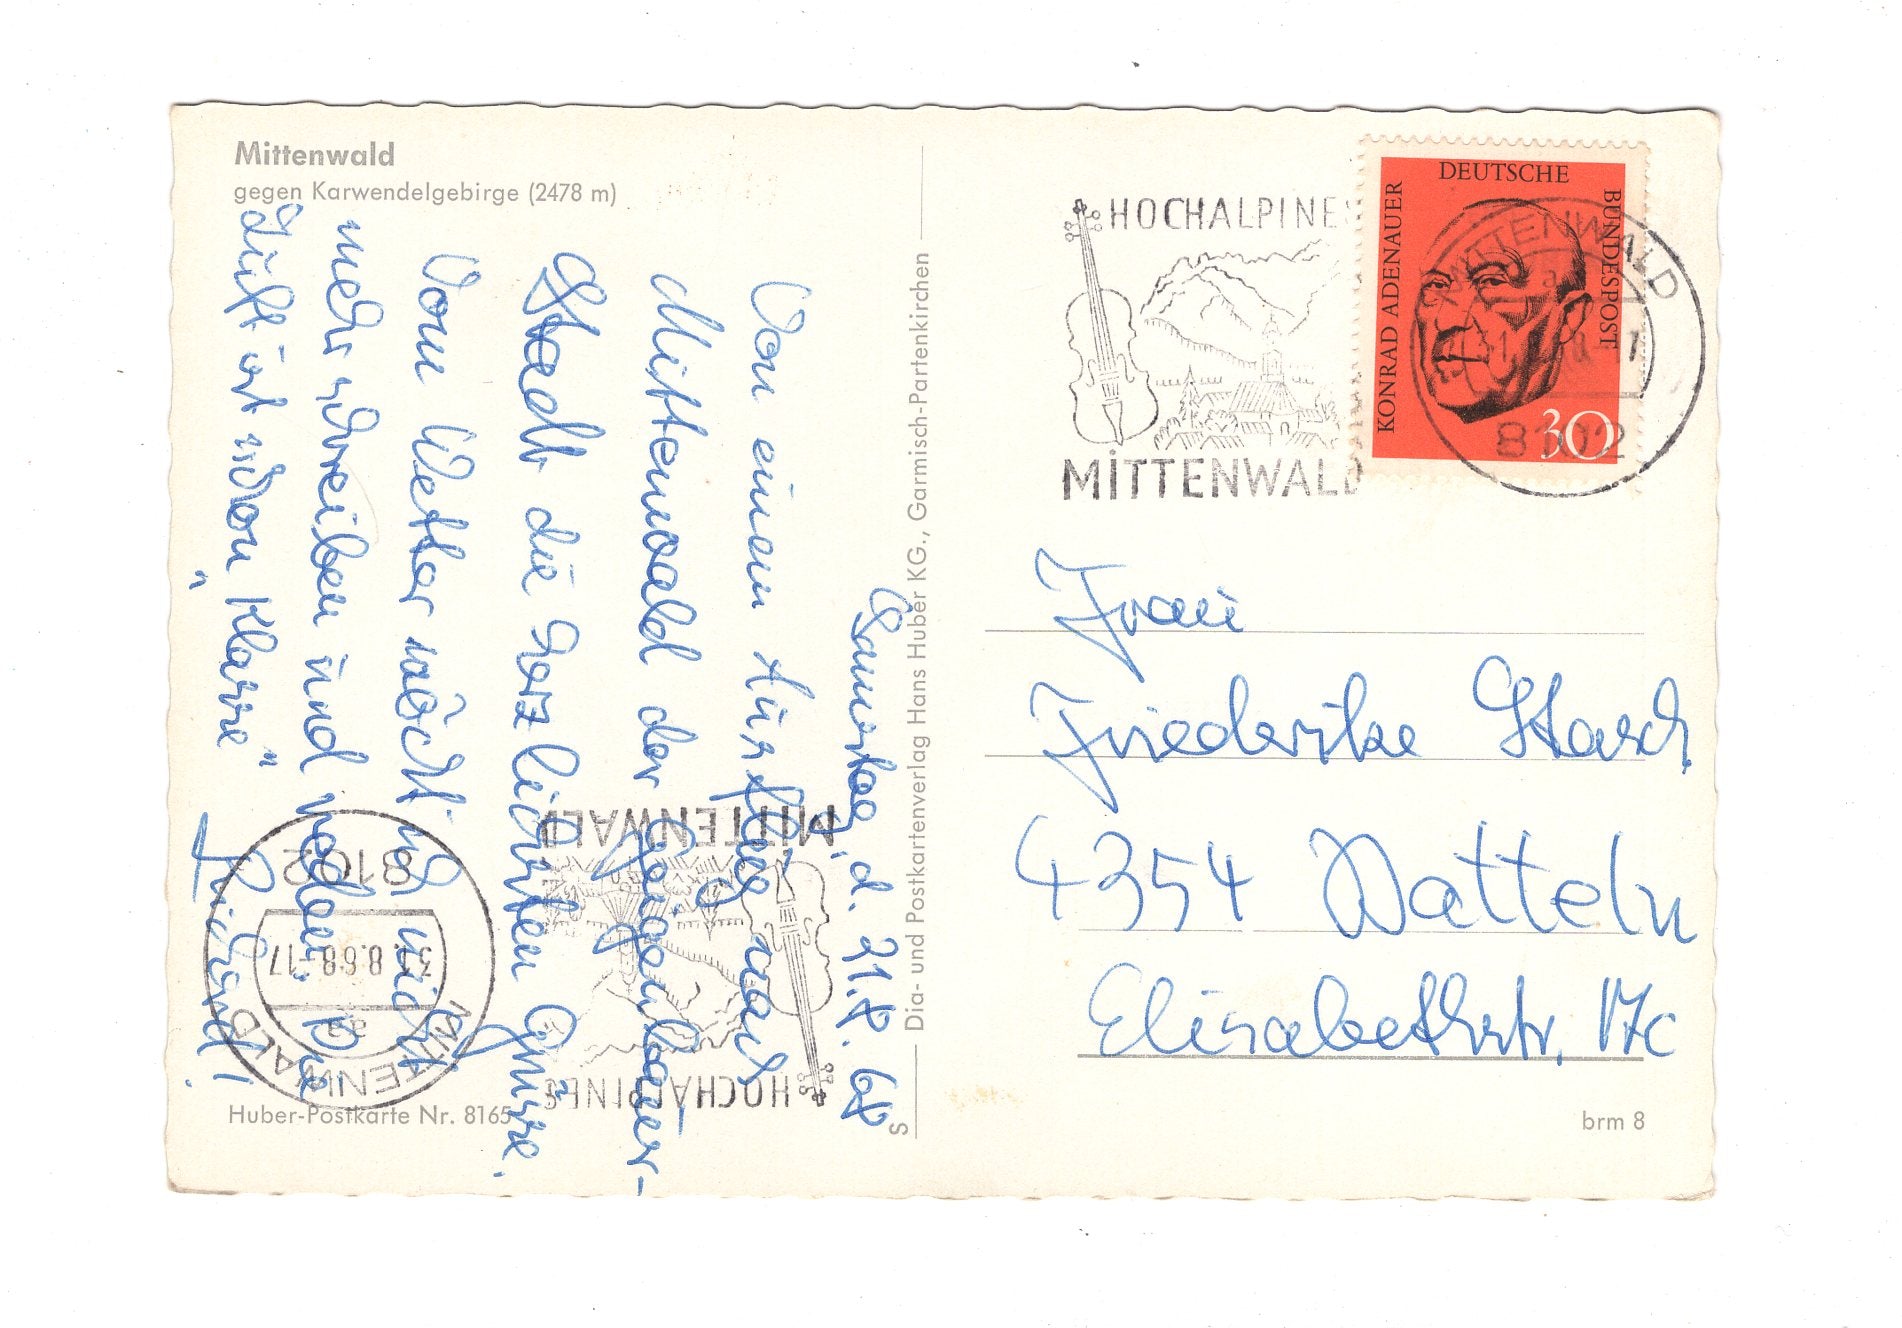 Mittenwald
gegen Karwendelgebirge (2478 m)
Samstag, d. 21.8. 68
Von einem Ausflug nach
Mittenwald der Geigenbauer-
Stadt die herzlichsten Grüsse.
Vom Wetter möcht' ich nicht
mehr schreiben und reden,
Luft ist schon "Klasse"
Dia- und Postkartenverlag Hans Huber KG., Garmisch-Partenkirchen
S
Huber-Postkarte Nr. 8165
HOCHALPINES
MITTENWALD
8102
8.68-17
MITTENWALD
aa
HOCHALPINE
MITTENWALD
DEUTSCHE
BUNDESPOST
KONRAD ADENAUER
30
MITTENWALD
8102
Frau
Friederike Stasch
4354 Datteln
Elisabethstr. 17c
brm 8